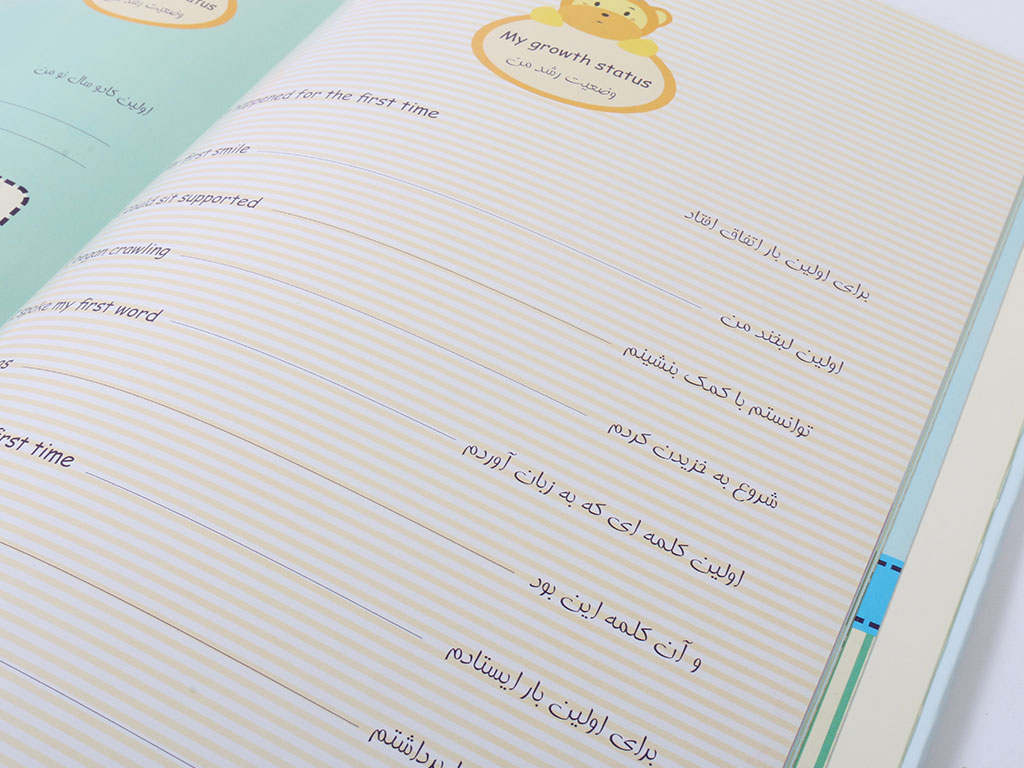 status
وضعیت رشد من
اولین کادو سال نو من
My growth status
وضعیت رشد من
happened for the first time
برای اولین بار اتفاق افتاد
first smile
اولین لبخند من
could sit supported
توانستم با کمک بنشینم
began crawling
شروع به خزیدن کردم
spoke my first word
اولین کلمه ای که به زبان آوردم
و آن کلمه این بود
first time
برای اولین بار ایستادم
برداشتم